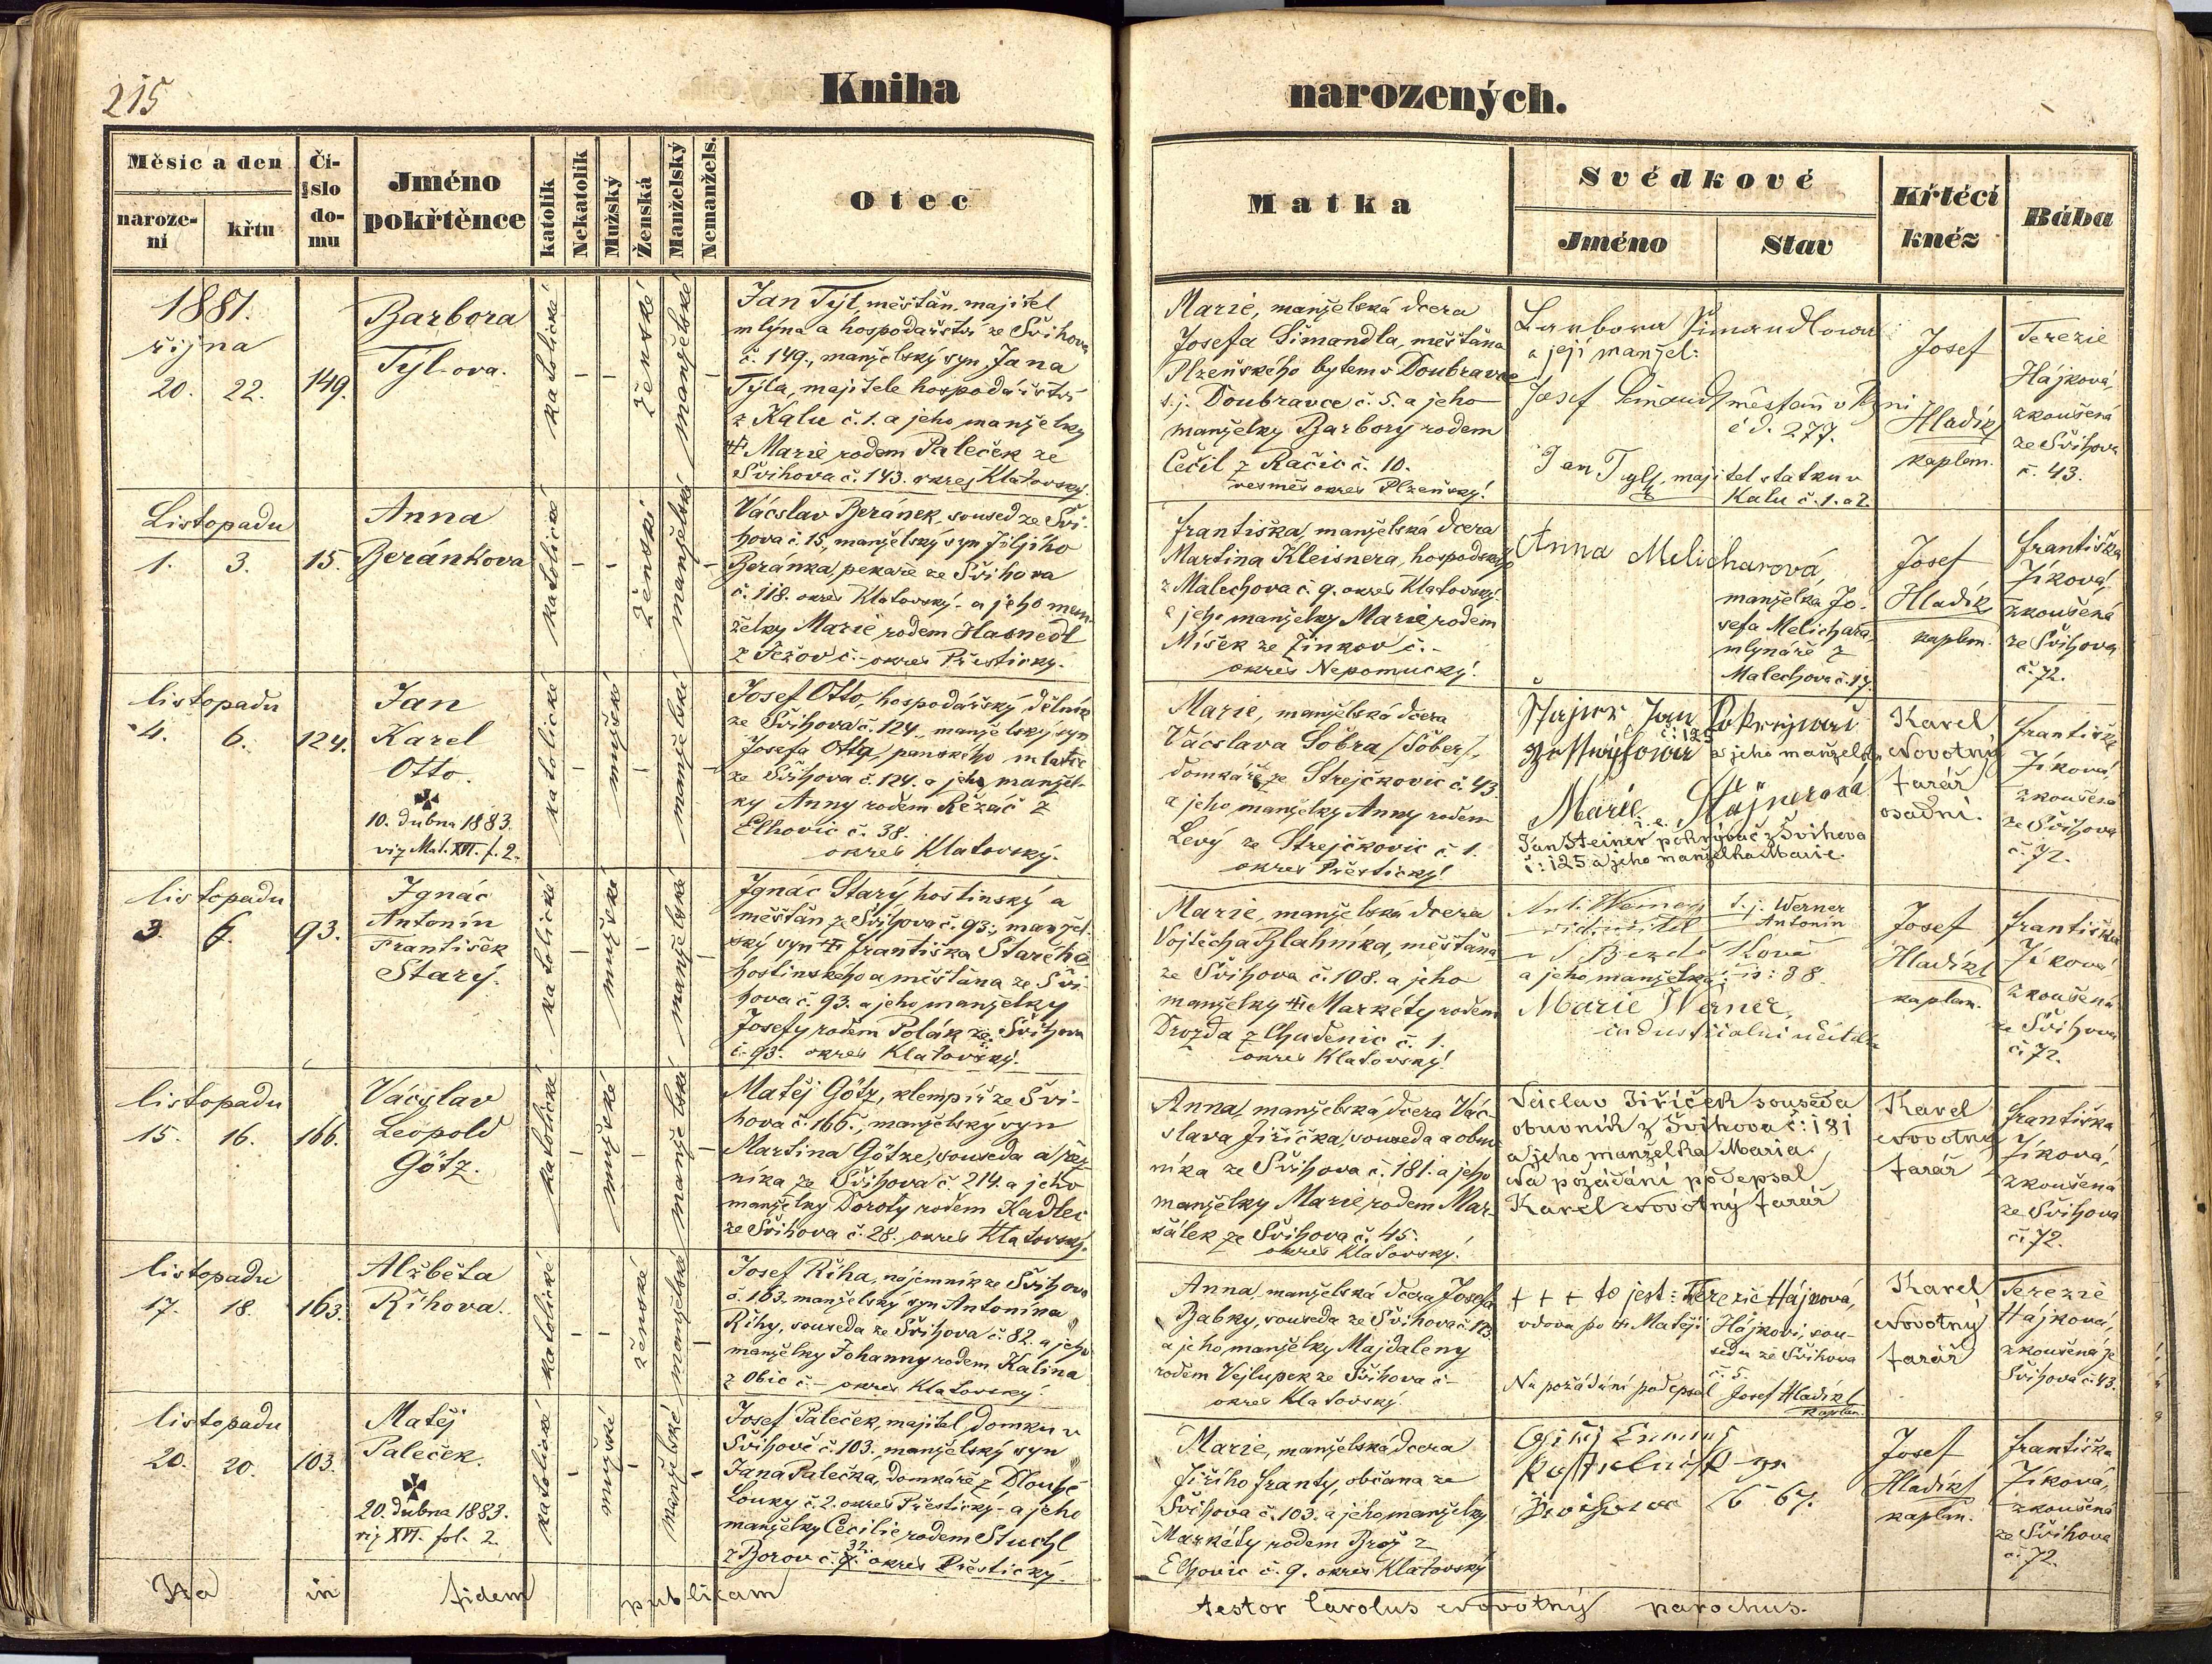 215
Kniha
narozených.
Měsíc a den
narozeni
křtu
Čislo domu
Jméno pokřtěnce
katolík
Nekatolík
Mužský
Ženská
Manželský
Nemanžels.
Otec
Matka
Svědkové
Jméno
Stav
Křtéci kněz
Bába
1881.
října
20. 22. 149.
Barbora
Týl-ova.
katolické
ženské
manželské
Jan Týl, měšťan, majitel
mlýna a hospodářství ze Švihova
č. 149., manželský syn Jana
Týla, majitele hospodářství
z Kalu č. 1. a jeho manželky
Marie rodem Paleček ze
Švihova č. 143. okres Klatovský.
Marie, manželská dcera
Josefa Šimandla, měšťana
Plzeňského bytem v Doubravce
t.j. Doubravce č. 5. a jeho
manželky Barbory rodem
Cečil z Račic č. 10.
vesměs okres Plzeňský.
Barbora Šimandlowa
a její manžel:
Josef Šimandl měšťan v Plzni
č d. 277.
Jan Tyl, majitel statku v
Kalu č. 1. a 2.
Josef
Hladík
kaplan.
Terezie
Hájková,
zkoušená
ze Švihova
č. 43.
Listopadu
1. 3. 15.
Anna
Beránkova
katolické
ženské
manželské
Vácslav Beránek, soused ze Švi-
hova č. 15, manželský syn Jiljího
Beránka, pekaře ze Švihova
č. 118. okres Klatovský a jeho man-
želky Marie rodem Hasnedl
z Ježov č. - okres Přestický.
Františka, manželská dcera
Martina Kleisnera, hospodského
z Malechova č. 9. okres Klatovský
a jeho manželky Marie rodem
Míšek ze Žinkov č. -
okres Nepomucký.
Anna Melicharová
manželka Jo-
sefa Melichara,
mlynáře z
Malechova č. 17.
Josef
Hladík
kaplan.
Františka
Jíková,
zkoušená
ze Švihova
č. 72.
listopadu
4. 6. 124.
Jan
Karel
Otto.
10. dubna 1883.
viz Mat. XVI. f. 2.
katolické
mužské
manželské
Josef Otto, hospodářský dělník
ze Švihova č. 124., manželský syn
Josefa Otty, panského mlatce
ze Švihova č. 124. a jeho manžel-
ky Anny rodem Řezáč z
Elhovic č. 38.
okres Klatovský.
Marie, manželská dcera
Vácslava Šobra /Šober/,
domkáře ze Strejčkovic č. 43
a jeho manželky Anny rodem
Levý ze Strejčkovic č. 1.
okres Přestický.
Jan
č: 125
a jeho manželka
Marie Štajnerová
t. e.
Jan Steiner pokrývač z Švihova
č: 125 a jeho manželka Marie.
Karel
Novotný
farář
osadní.
Františka
Jíková
zkoušená
ze Švihova
č. 72.
listopadu
3. 6. 93.
Ignác
Antonín
František
Starý.
katolické
mužské
manželské
Ignác Starý, hostinský a
měšťan ze Švihova č. 93., manžel-
ský syn Františka Starého
hostinského a měšťana ze Švi-
hova č. 93. a jeho manželky
Josefy rodem Polák ze Švihova
č. 93. okres Klatovský.
Marie, manželská dcera
Vojtěcha Blahníka, měšťana
ze Švihova č. 108. a jeho
manželky Markéty rodem
Drozda z Chudenic č. 1.
okres Klatovský.
Ant. Werner t. j. Werner
Antonín
a jeho manželka č: 38.
Marie Werner,
industrialní učitelka
Josef
Hladík
kaplan.
Františka
Jíková
zkoušená
ze Švihova
č. 72.
listopadu
15. 16. 166.
Vácslav
Leopold
Götz.
katolické
mužské
manželské
Matěj Götz, klempíř ze Švi-
hova č. 166., manželský syn
Martina Götze, souseda a řez-
níka ze Švihova č. 214. a jeho
manželky Doroty rodem Kadlec
ze Švihova č. 28. okres Klatovský.
Anna, manželská dcera Vác-
slava Jiřička, souseda a obuv-
níka ze Švihova č. 181. a jeho
manželky Marie rodem Mar-
šálek ze Švihova č. 45.
okres Klatovský.
Václav Jiříček souseda
obuvník z Švihova č: 181
a jeho manželka Maria.
Na požádání podepsal
Karel Novotný farář
Karel
Novotný
farář
Františka
Jíková,
zkoušená
ze Švihova
č. 72.
listopadu
17. 18. 163.
Alžběta
Říhova.
katolické
ženské
manželské
Josef Říha, nájemník ze Švihova
č. 163. manželský syn Antonína
Říhy, souseda ze Švihova č. 82. a jeho
manželky Johanny rodem Kalina
z Obic č. - okres Klatovský.
Anna, manželská dcera Josefa
Babky, souseda ze Švihova č. 123
a jeho manželky Majdaleny
rodem Vejlupek ze Švihova č. -
okres Klatovský.
+ + + to jest: Terezie Hájková,
vdova po Matěji Hájkovi, sou-
sedu ze Švihova
č. 5.
Na požádání podepsal Josef Hladík
kaplan.
Karel
Novotný
farář
Terezie
Hájková,
zkoušená ze
Švihova č. 43.
listopadu
20. 20. 103.
Matěj
Paleček.
20. dubna 1883.
viz XVI. fol. 2.
katolické
mužské
manželské
Josef Paleček, majitel domku v
Švihově č. 103, manželský syn
Jana Palečka, domkáře z Dlouhé
Louky č. 2. okres Přestický a jeho
manželky Cecilie rodem Stuchl
z Borov č. 32. okres Přestický.
Marie, manželská dcera
Jiřího Franty, občana ze
Švihova č. 103. a jeho manželky
Markéty rodem Brož z
Elhovic č. 9. okres Klatovský
67.
Josef
Hladík
kaplan.
Františka
Jíková,
zkoušená
ze Švihova
č. 72.
Ita in fidem publicam
testor Carolus Novotný parochus.